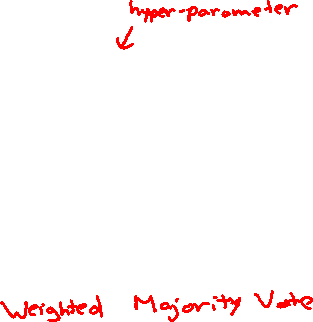 hyper-parameter
Weighted Majority Vote